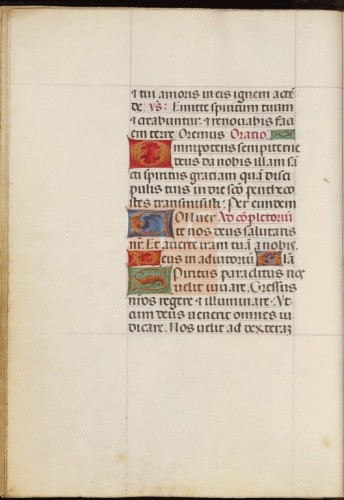 & tui amoris in eis ignem accē
de v̄s: Emitte spiritum tuum
& creabuntur. & renovabis faci
em terre Oremus Oratio.
Omnipotens sempiterne
deus da nobis illam sā
cti spiritus gratiam quā disci
pulis tuis in die scō penthecos
stes transmisisti: Per eundem
Onver Ad cōpletoriū
te nos deus salutaris
nr̄. Et averte iram tuā a nobis.
Deus in adiutoriū Glā
Spiritus paraclitus nos
velit iuvare. Gressus
nr̄os regere & illuminare. Vt
cum deus venerit omnes iu
dicare. Nos velit ad dexterā